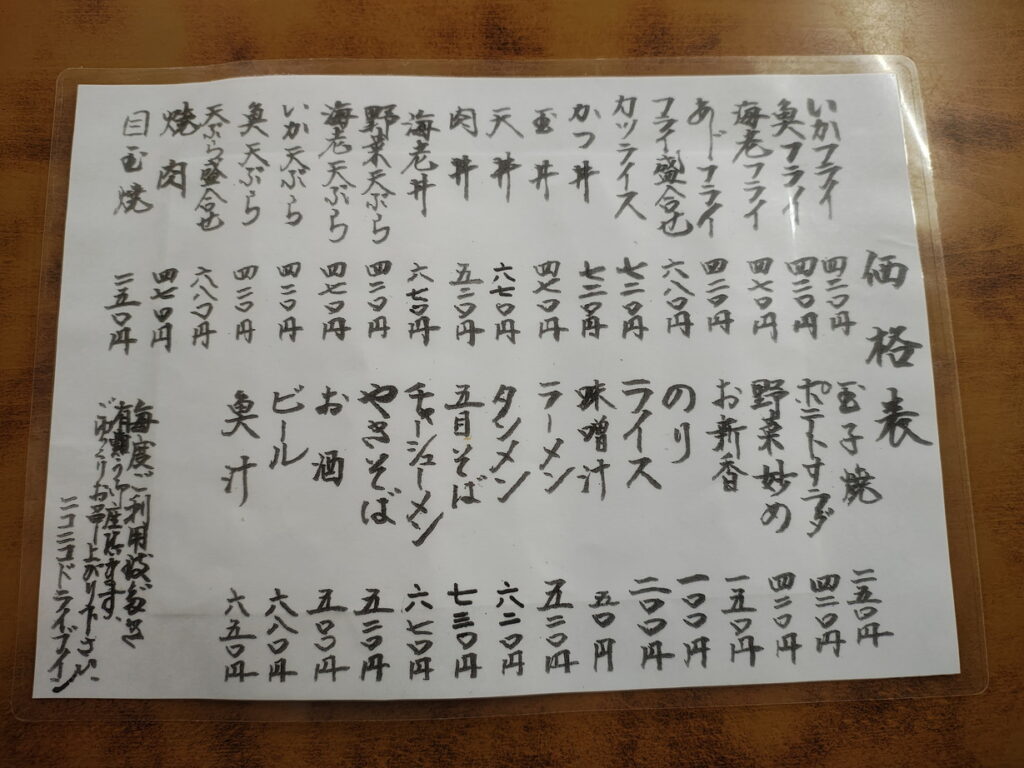 価格表
いかフライ 四二〇円
魚フライ 四二〇円
海老フライ 四七〇円
あじフライ 四二〇円
フライ盛合せ 六八〇円
カツライス 七二〇円
かつ丼 七二〇円
玉丼 四七〇円
天丼 六七〇円
肉丼 五二〇円
海老丼 六七〇円
野菜天ぷら 四二〇円
海老天ぷら 四七〇円
いか天ぷら 四二〇円
魚天ぷら 四二〇円
天ぷら盛合せ 六八〇円
焼肉 四七〇円
目玉焼 二五〇円
玉子焼 二五〇円
ポテトサラダ 四二〇円
野菜炒め 四二〇円
お新香 一五〇円
のり 一〇〇円
ライス 二〇〇円
味噌汁 五〇円
ラーメン 五二〇円
タンメン 六二〇円
五目そば 七三〇円
チャーシューメン 六七〇円
やきそば 五二〇円
お酒 五〇〇円
ビール 六八〇円
魚汁 六五〇円
毎度ご利用頂き
有難うございます、
ごゆっくりお召し上がり下さい、
ニコニコドライブイン